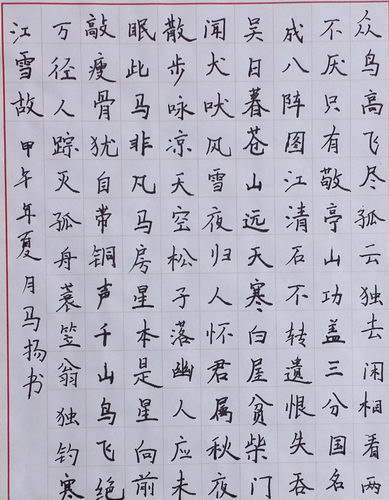 众鸟高飞尽孤云独去闲相看两
不厌只有敬亭山功盖三分国名
成八阵图江清石不转遗恨失吞
吴日暮苍山远天寒白屋贫柴门
闻犬吠风雪夜归人怀君属秋夜
散步咏凉天空松子落幽人应未
眠此马非凡马房星本是星向前
敲瘦骨犹自带铜声千山鸟飞绝
万径人踪灭孤舟蓑笠翁独钓寒
江雪故 甲午年夏月马扬书